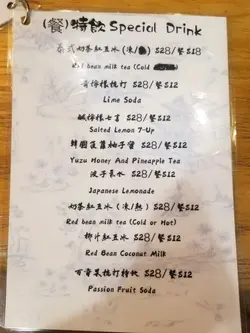 (餐)特飲 Special Drink
泰式奶茶紅豆冰(凍/) $28/餐$18
Red bean milk tea (Cold
青檸檬梳打 $28/餐$12
Lime Soda
鹹檸檬七喜 $28/餐$12
Salted Lemon 7-Up
韓國菠蘿柚子蜜 $28/餐$12
Yuzu Honey And Pineapple Tea
波子汽水 $28/餐$12
Japanese Lemonade
奶茶紅豆冰(凍/熱) $28/餐$12
Red bean milk tea (Cold or Hot)
椰汁紅豆冰 $28/餐$12
Red Bean Coconut Milk
百香果梳打特飲 $28/餐$12
Passion Fruit Soda